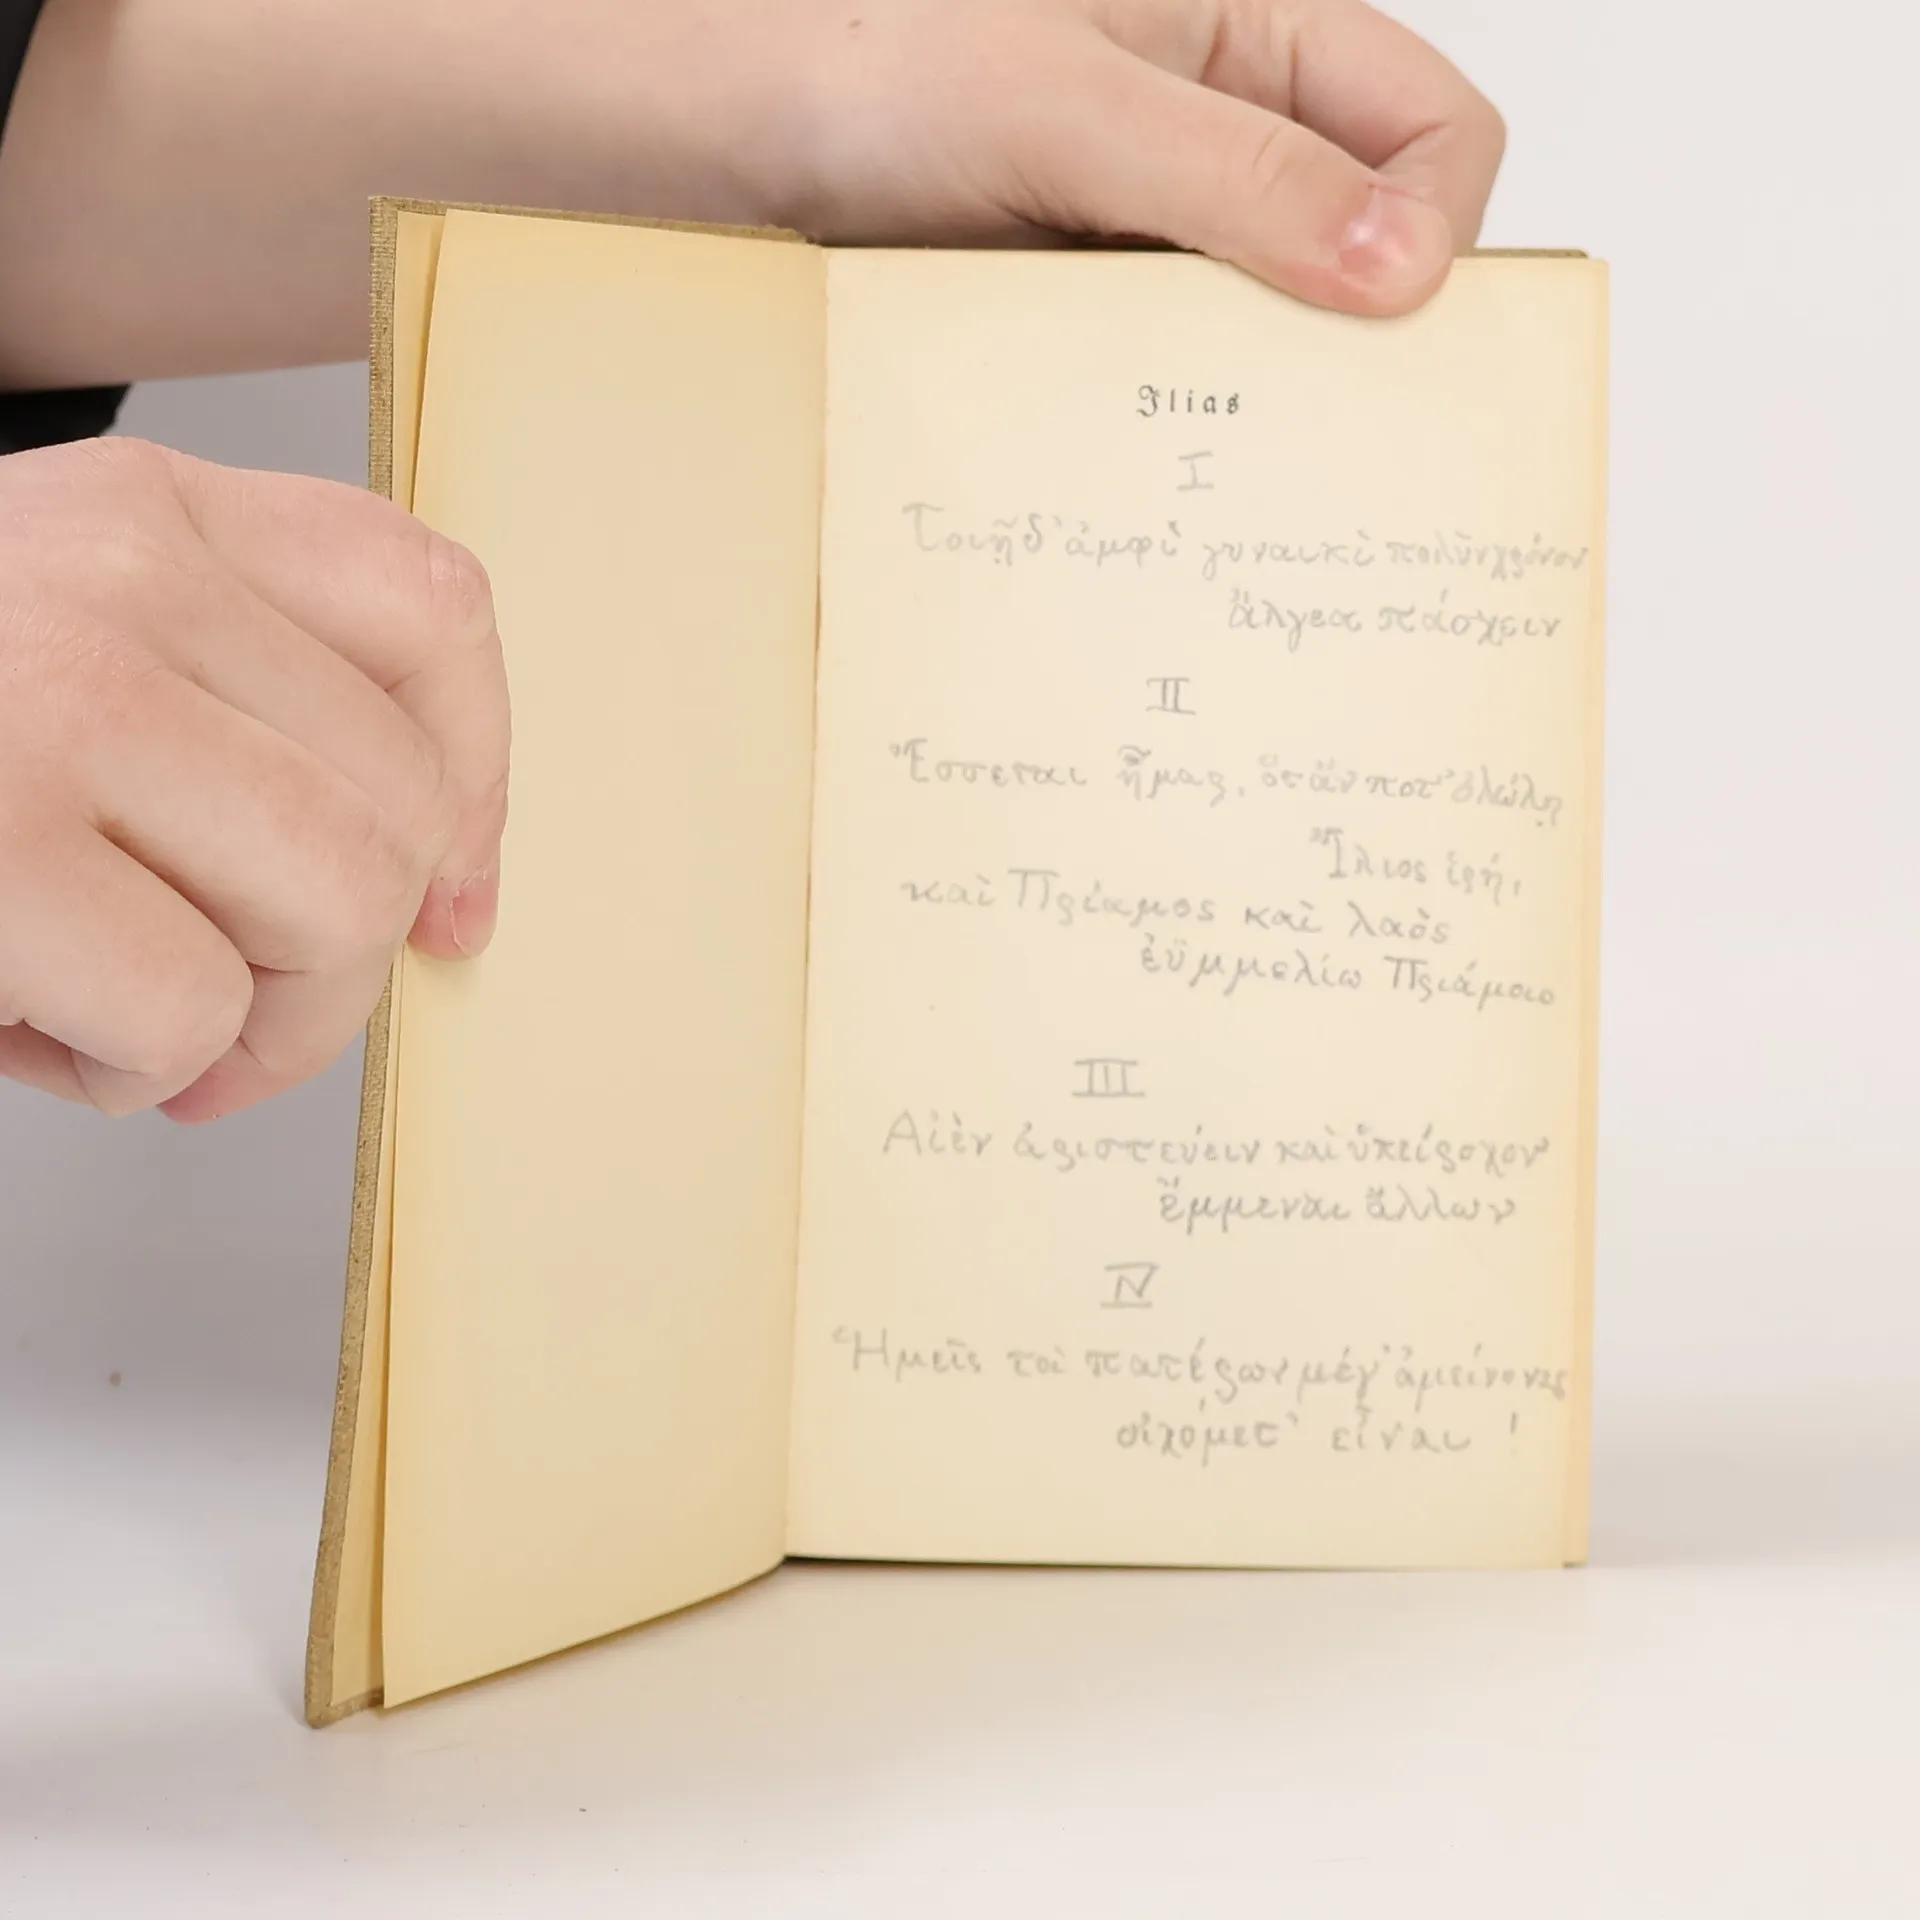 Ilias
I
Τοιῇδ' ἀμφὶ γυναικὶ πολὺν χρόνον
ἄλγεα πάσχειν
II
Ἔσσεται ἦμαρ, ὅτ' ἄν ποτ' ὀλώλῃ
Ἴλιος ἱρή,
καὶ Πρίαμος καὶ λαὸς
ἐϋμμελίω Πριάμοιο
III
Αἰὲν ἀριστεύειν καὶ ὑπείροχον
ἔμμεναι ἄλλων
IV
Ἡμεῖς τοι πατέρων μέγ' ἀμείνονες
εὐχόμετ' εἶναι !